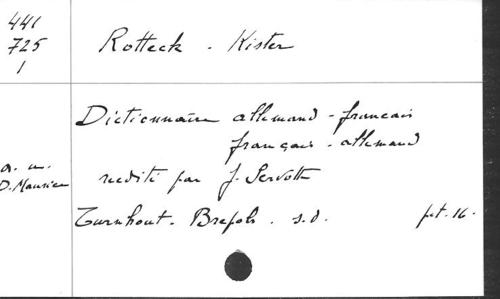 441
725
1
Rotteck - Kister
Dictionnaire allemand - francais
français - allemand
a. m.
D. Maurice
reedité par J. Servotte
Turnhout. Brepols. s.d. pt. 16.